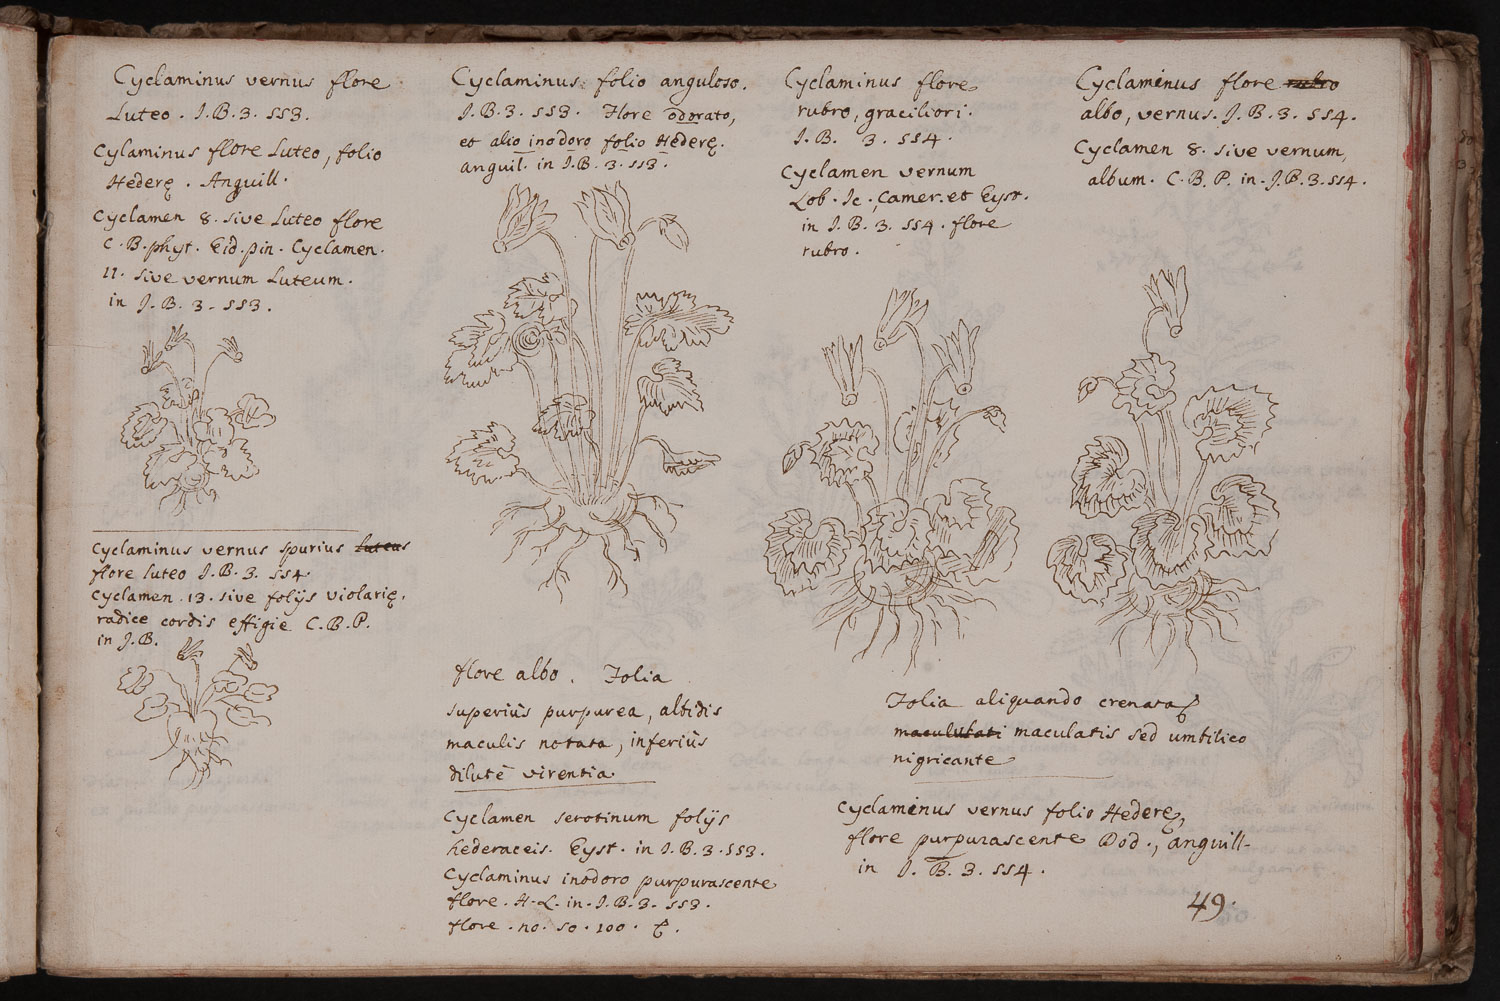 Cyclaminus vernus flore
Luteo. J.B.3. 553.
Cylaminus flore Luteo, folio
Hederę. Anguill.
Cyclamen 8. sive Luteo flore
C.B.phyt. Eid.pin. Cyclamen.
11. sive vernum Luteum.
in J.B. 3. 553.
Cyclaminus vernus spurius luteus
flore luteo J.B.3. 554
Cyclamen 13. sive folijs violarię.
radice cordis effigie C.B.P.
in J.B.
Cyclaminus folio anguloso.
J.B.3. 553. Flore odorato,
et alio inodoro folio Hederę.
anguil. in J.B. 3. 553.
flore albo. Folia
superiùs purpurea, albidis
maculis notata, inferiùs
dilutè virentia
Cyclamen serotinum folijs
hederaceis. Eyst. in J.B.3.553.
Cyclaminus inodoro purpurascente
flore. H.L. in J.B.3. 553.
flore. no. 50. 100.
Cyclaminus flore
rubro, graciliori.
J.B. 3. 554.
Cyclamen vernum
Lob. Ic. Camer. et Eyst.
in J.B. 3. 554. flore
rubro.
Cyclaminus flore rubro
albo, vernus. J.B.3. 554.
Cyclamen 8. sive vernum,
album. C.B.P. in J.B.3.554.
Folia aliquando crenata
maculis sed umbilico
nigricante
Cyclaminus vernus folio Hederę,
flore purpurascente Dod., anguill.
in J.B.3. 554.
49.